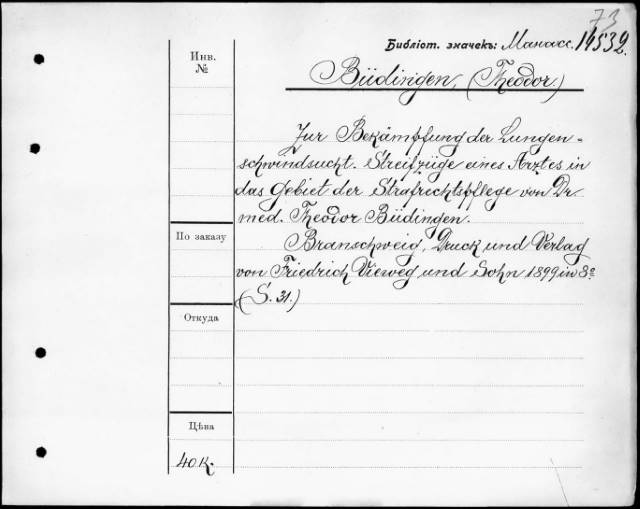 73
Библіот. значекъ: Манасс. 14532.
Инв.
№
Büdingen, (Theodor.)
Zur Bekämpfung der Lungen-
schwindsucht. Streifzüge eines Arztes in
das Gebiet der Strafrechtspflege von Dr.
med. Theodor Büdingen.
По заказу
Branschweig, Druck und Verlag
von Friedrich Vieweg und Sohn 1899 in 8º
(S. 31.)
Откуда
Цѣна
40 к.